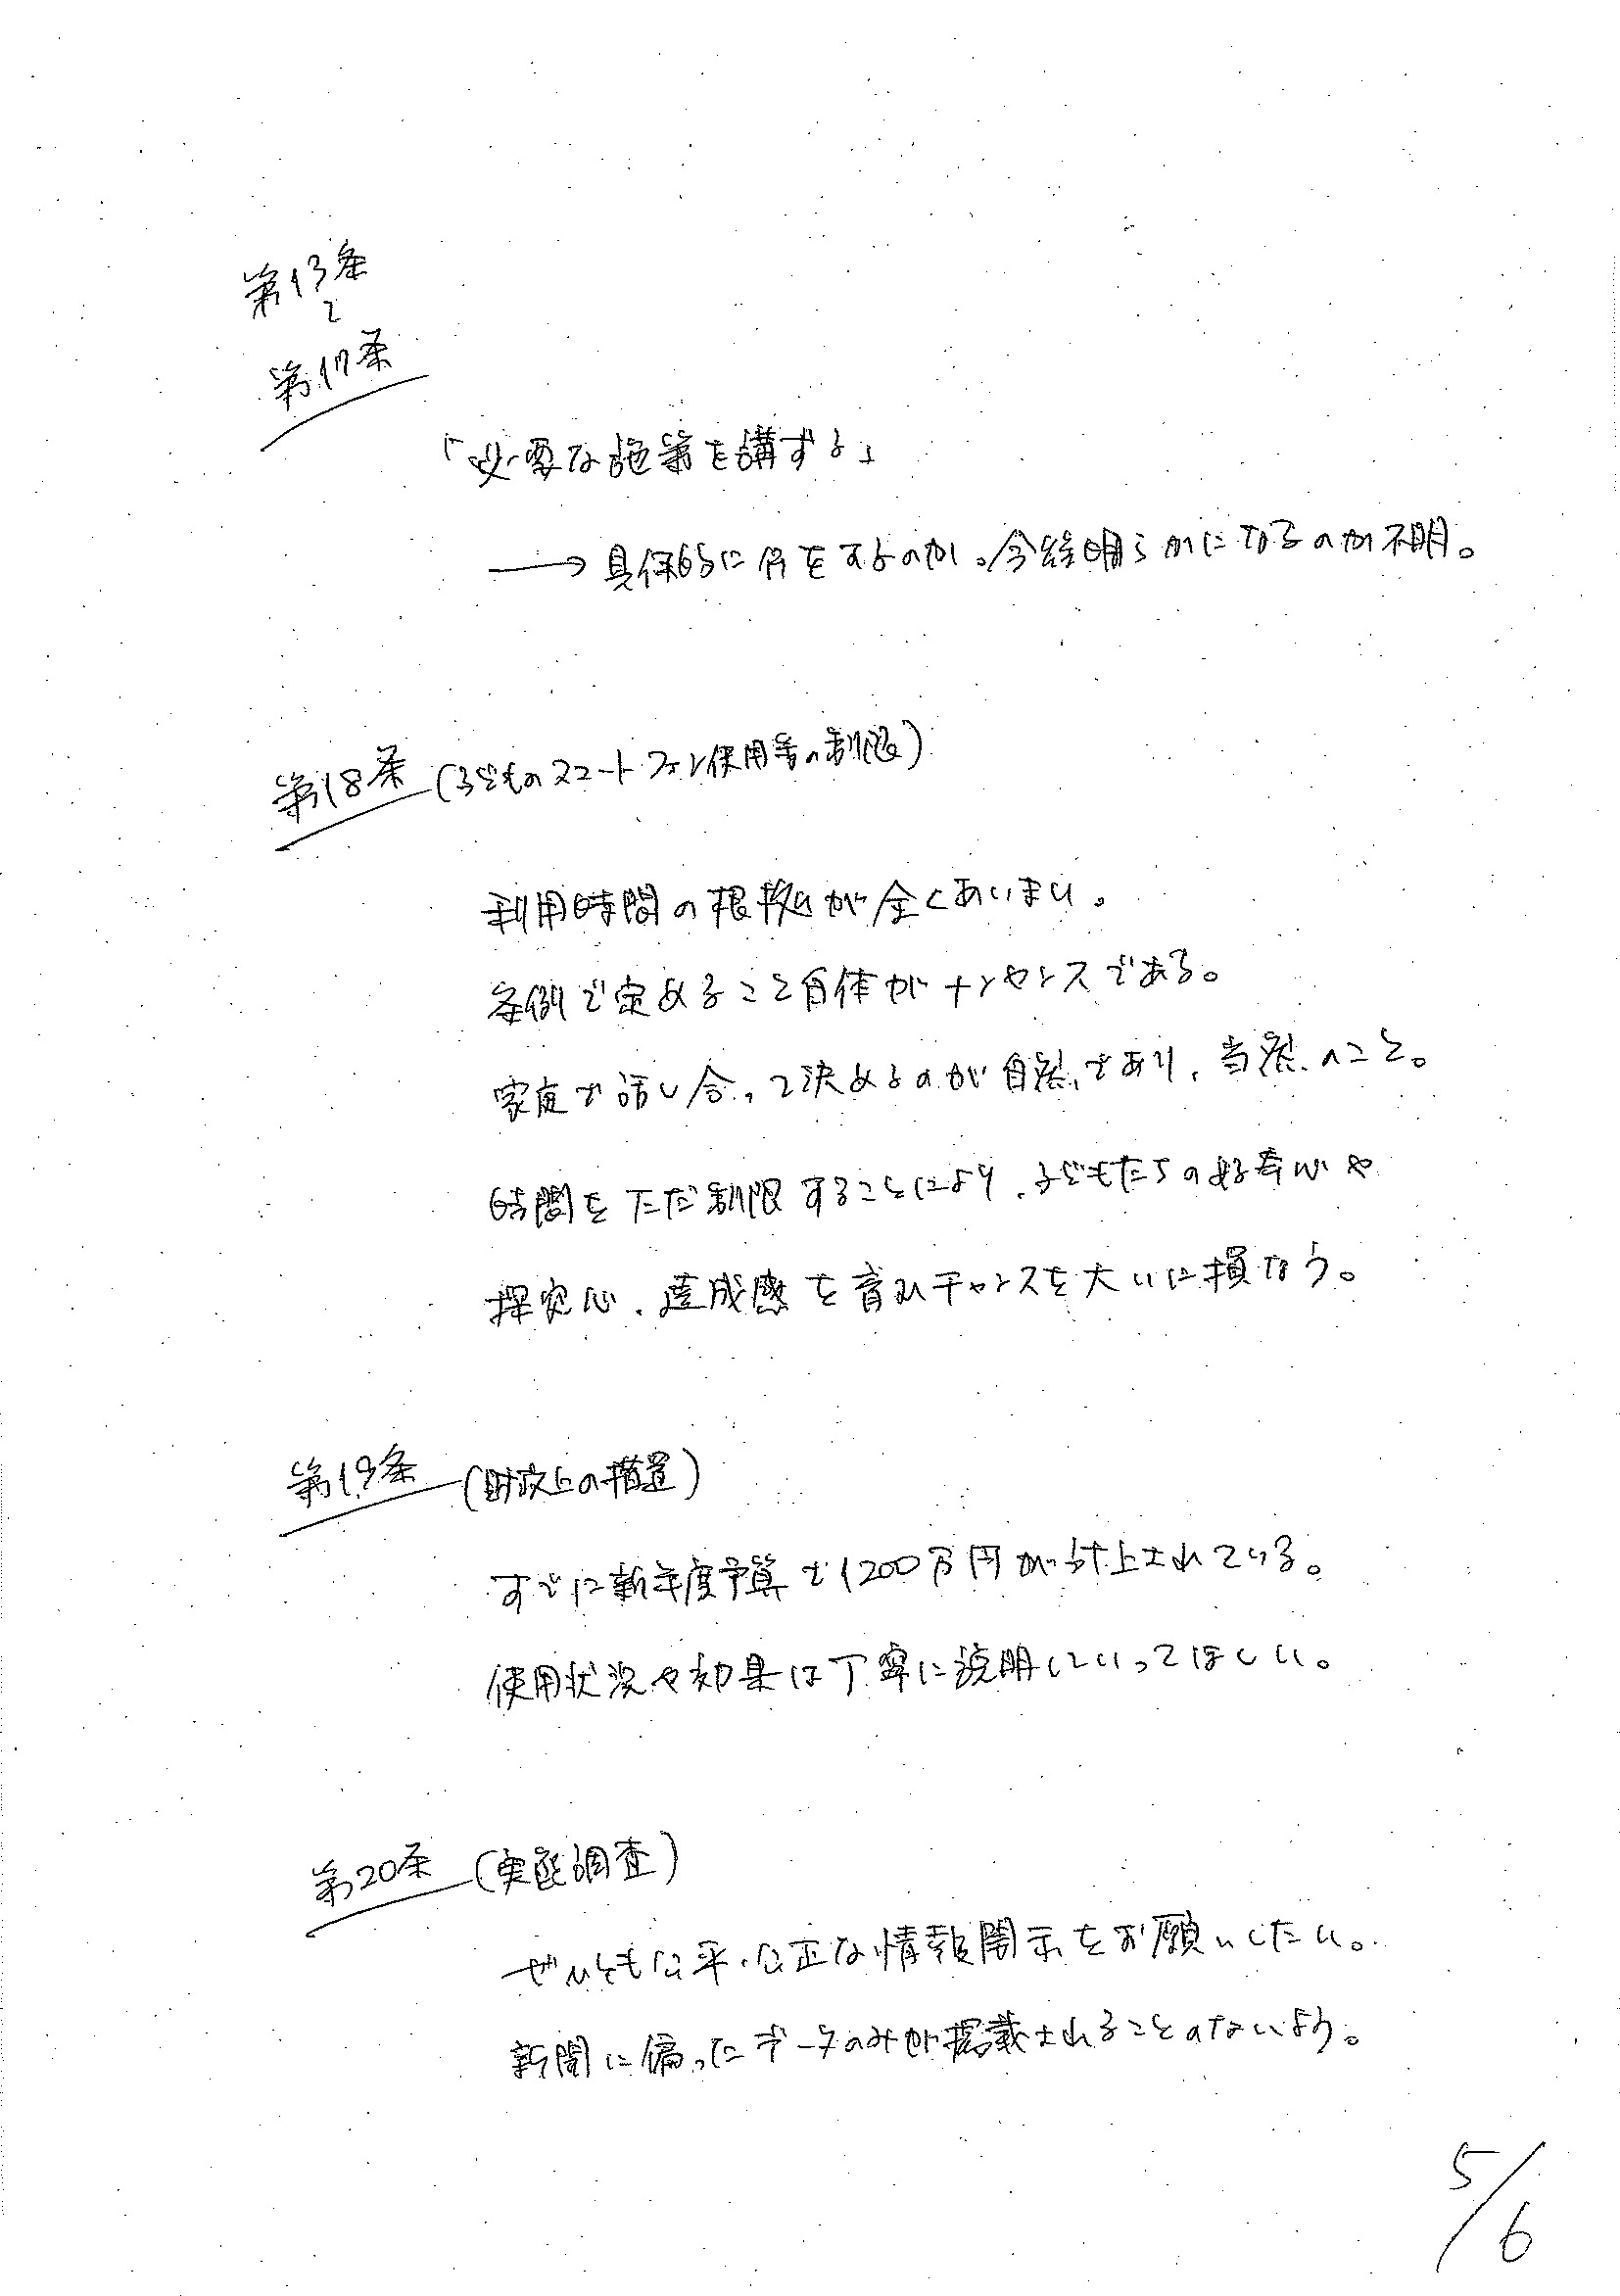 第13条
〜
第17条
「必要な施策を講ずる」
→具体的に何をするのか。今後明らかになるのか不明。
第18条(子どものスマートフォン使用等の制限)
利用時間の根拠が全くあいまい。
条例で定めること自体がナンセンスである。
家庭で話し合って決めるのが自然であり、当然のこと。
時間をただ制限することにより、子どもたちの好奇心や
探究心、達成感を育むチャンスを大いに損なう。
第19条(財政上の措置)
すでに新年度予算で1200万円が計上されている。
使用状況や効果は丁寧に説明していってほしい。
第20条(実態調査)
ぜひとも公平・公正な情報開示をお願いしたい。
新聞に偏ったデータのみが掲載されることのないよう。
5/6